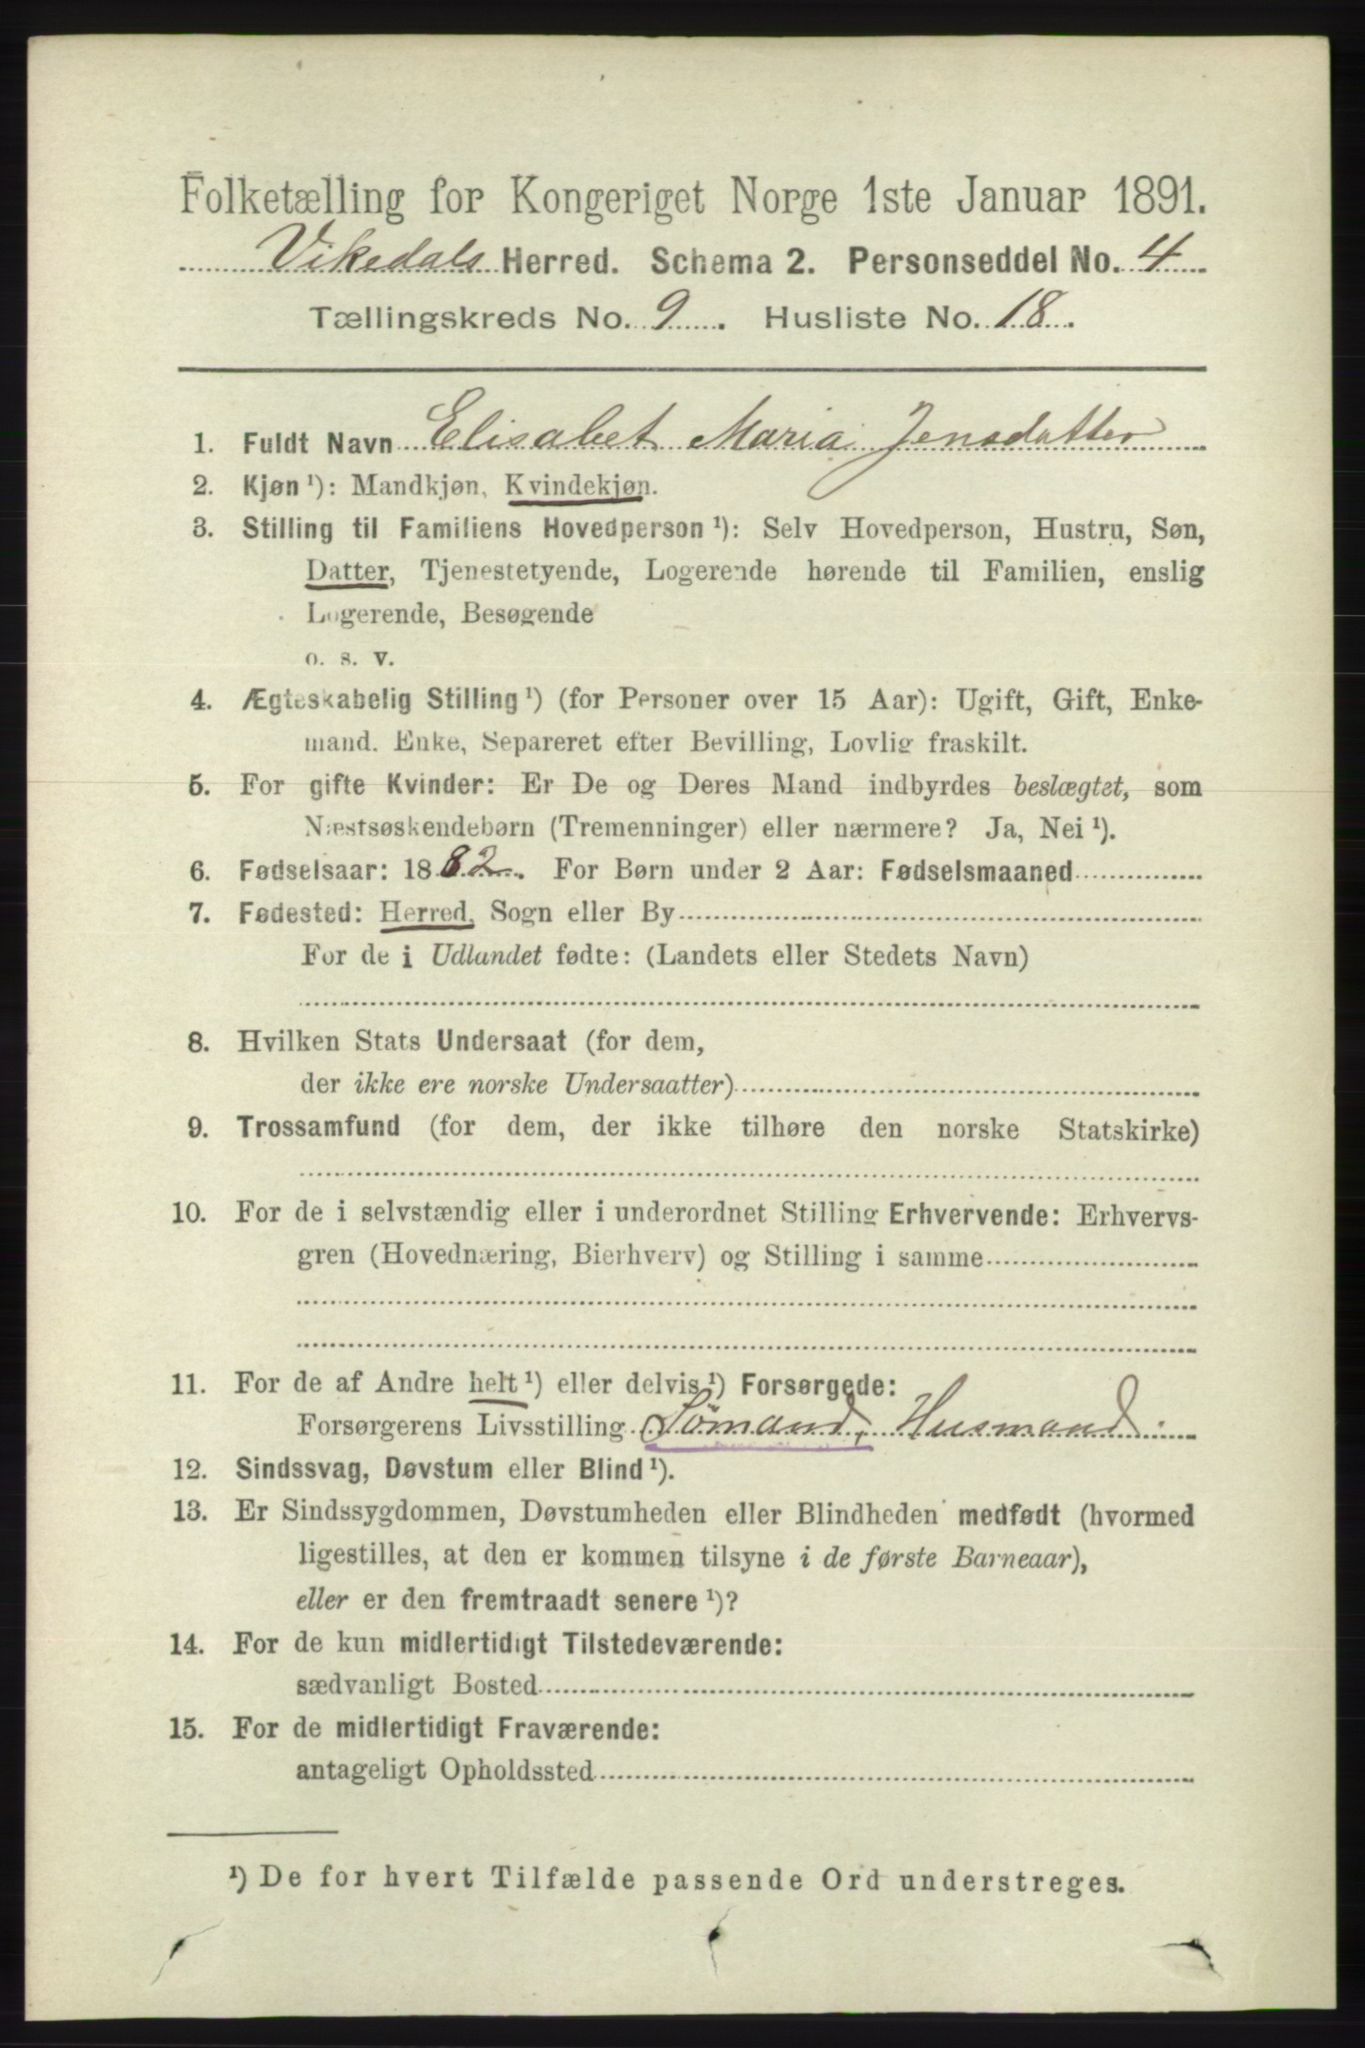 Folketælling for Kongeriget Norge 1ste Januar 1891.
Vikedals Herred. Schema 2. Personseddel No. 4
Tællingskreds No. 9. Husliste No. 18.
1. Fuldt Navn Elisabet Maria Jensdatter
2. Kjøn ¹): Mandkjøn, Kvindekjøn.
3. Stilling til Familiens Hovedperson ¹): Selv Hovedperson, Hustru, Søn,
Datter, Tjenestetyende, Logerende hørende til Familien, enslig
Logerende, Besøgende
o. s. v.
4. Ægteskabelig Stilling ¹) (for Personer over 15 Aar): Ugift, Gift, Enke-
mand, Enke, Separeret efter Bevilling, Lovlig fraskilt.
5. For gifte Kvinder: Er De og Deres Mand indbyrdes beslægtet, som
Næstsøskendebørn (Tremenninger) eller nærmere? Ja, Nei ¹).
6. Fødselsaar: 1882. For Børn under 2 Aar: Fødselsmaaned
7. Fødested: Herred, Sogn eller By
For de i Udlandet fødte: (Landets eller Stedets Navn)
8. Hvilken Stats Undersaat (for dem,
der ikke ere norske Undersaatter)
9. Trossamfund (for dem, der ikke tilhøre den norske Statskirke)
10. For de i selvstændig eller i underordnet Stilling Erhvervende: Erhvervs-
gren (Hovednæring, Bierhverv) og Stilling i samme
11. For de af Andre helt ¹) eller delvis ¹) Forsørgede:
Forsørgerens Livsstilling Sømand, Husmand
12. Sindssvag, Døvstum eller Blind ¹).
13. Er Sindssygdommen, Døvstumheden eller Blindheden medfødt (hvormed
ligestilles, at den er kommen tilsyne i de første Barneaar),
eller er den fremtraadt senere ¹)?
14. For de kun midlertidigt Tilstedeværende:
sædvanligt Bosted
15. For de midlertidigt Fraværende:
antageligt Opholdssted
¹) De for hvert Tilfælde passende Ord understreges.